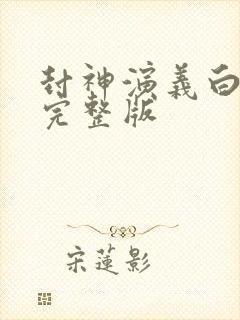 封神演義白
完整版
宋蓮影